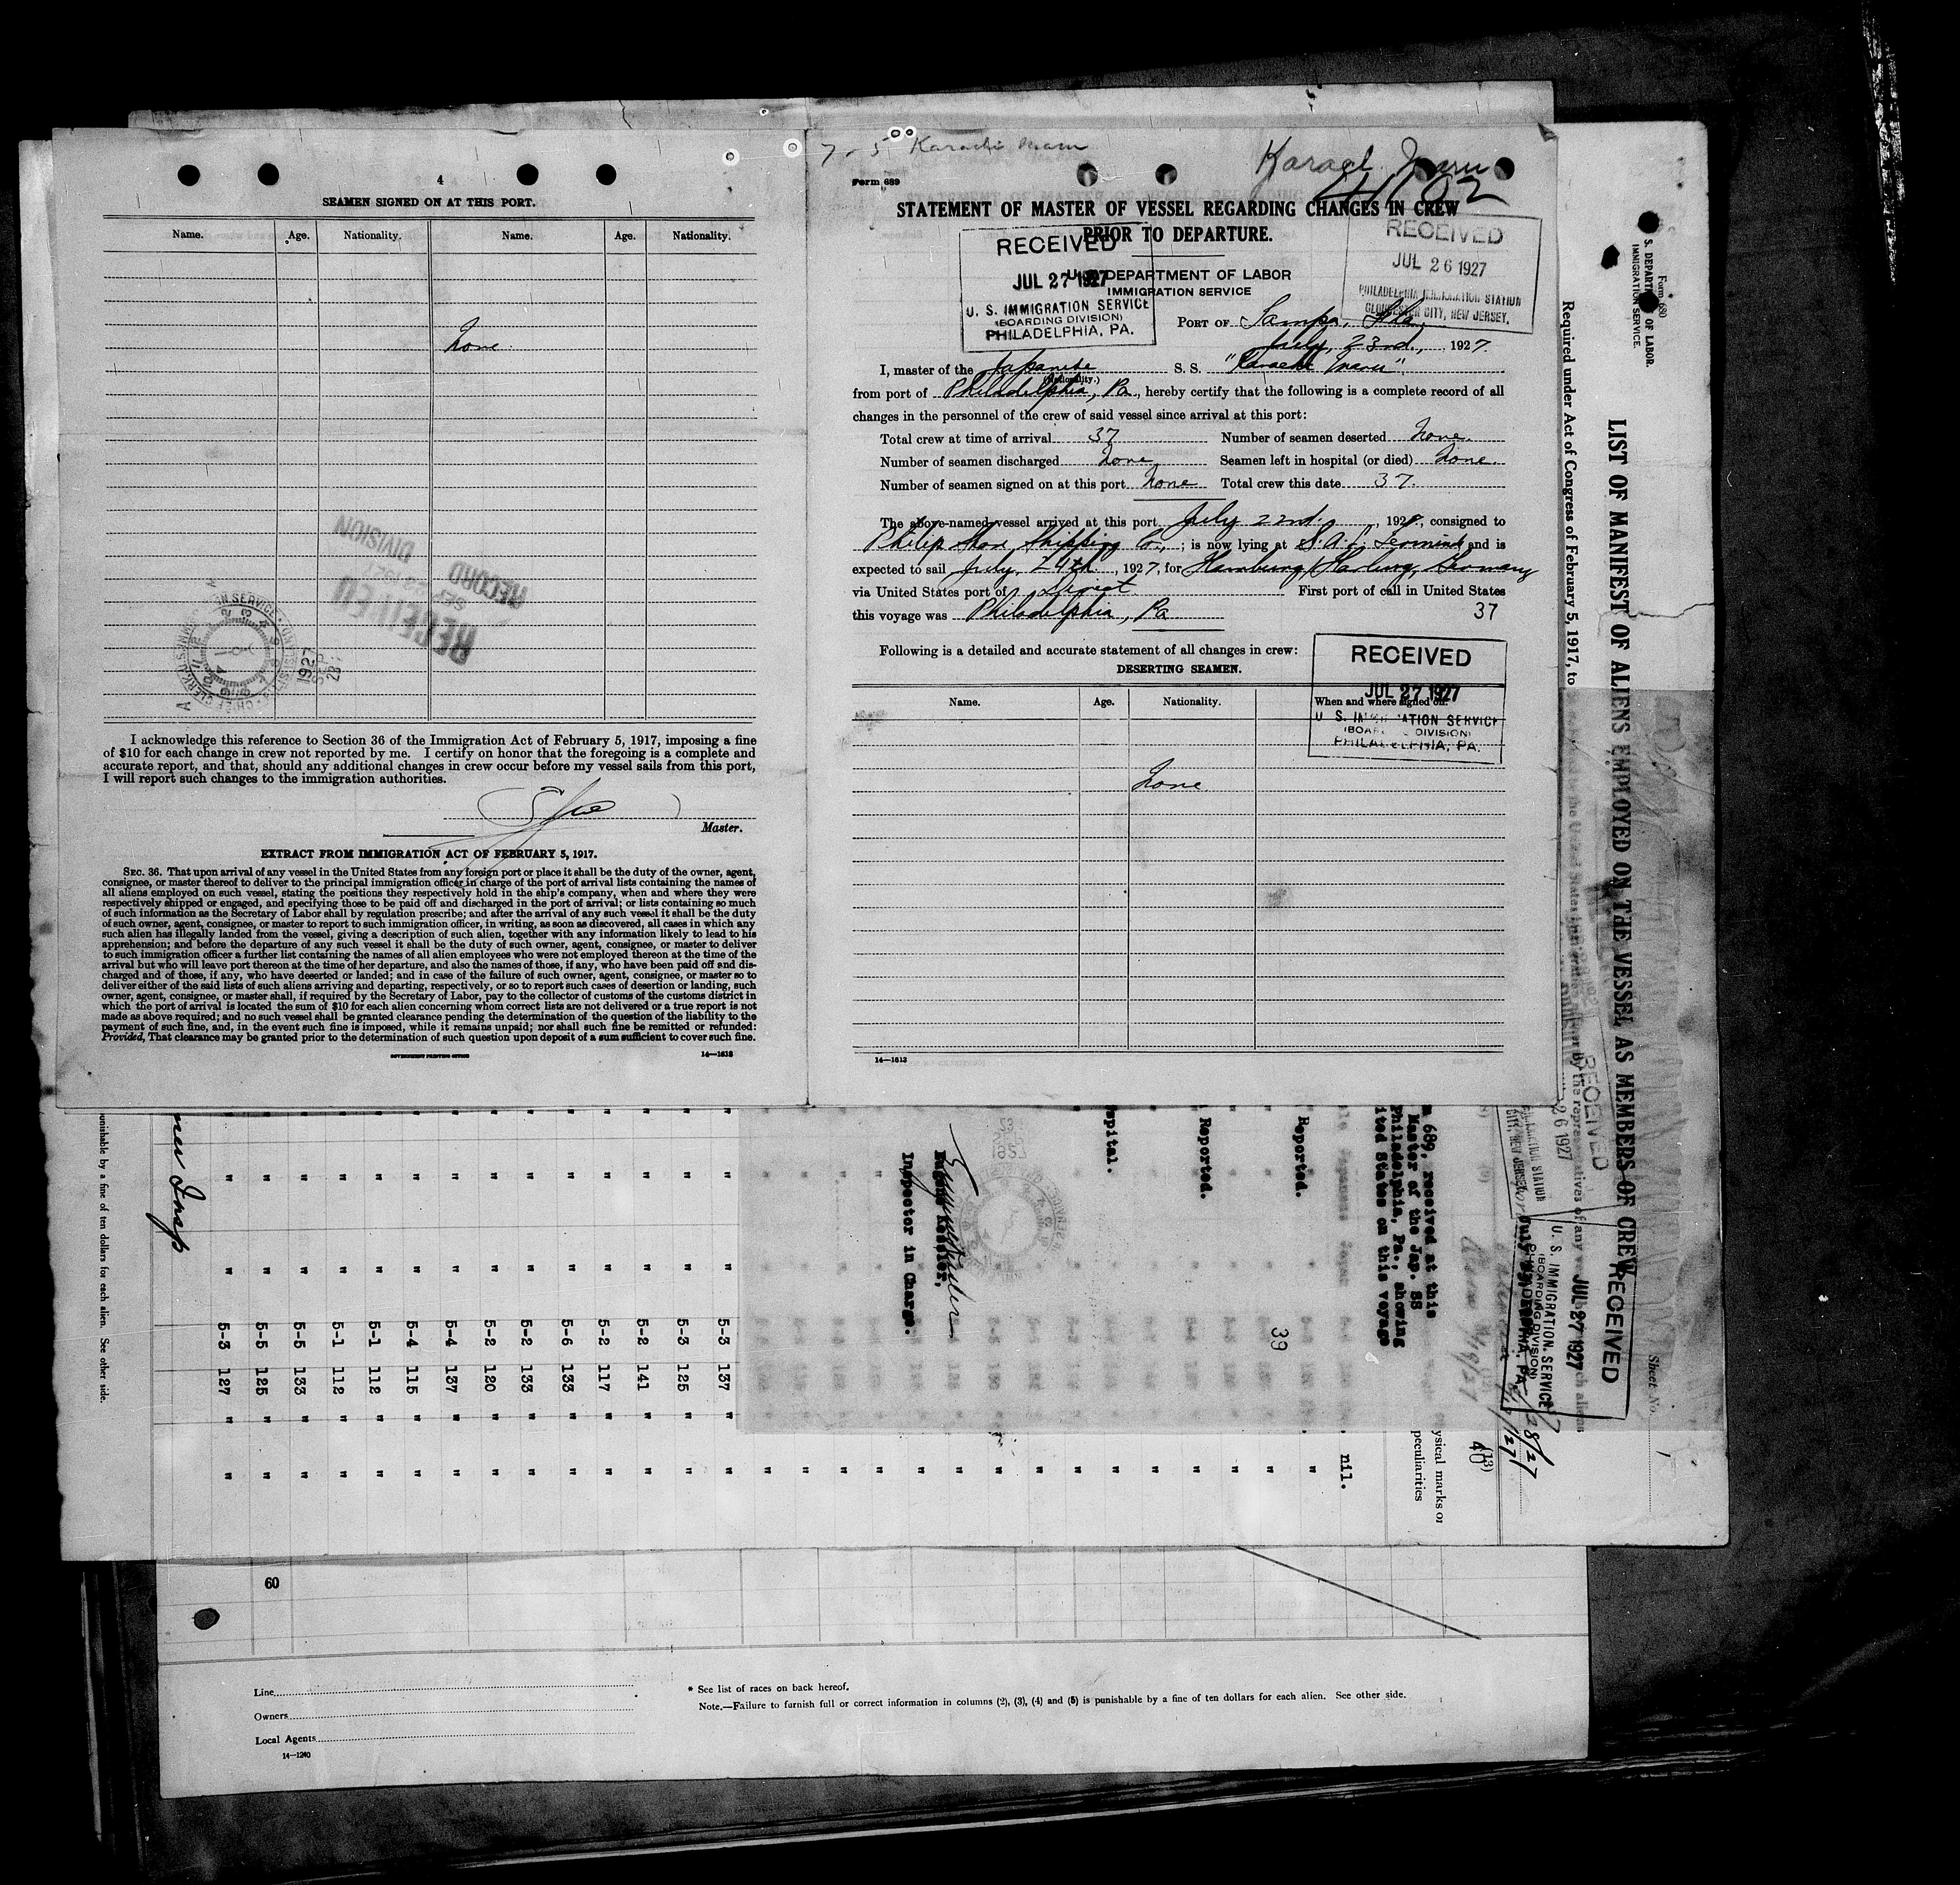 4
SEAMEN SIGNED ON AT THIS PORT.
Name. Age. Nationality. Name. Age. Nationality.
None.
RECEIVED
RECORD
DIVISION
1927
SEP
I acknowledge this reference to Section 36 of the Immigration Act of February 5, 1917, imposing a fine
of $10 for each change in crew not reported by me. I certify on honor that the foregoing is a complete and
accurate report, and that, should any additional changes in crew occur before my vessel sails from this port,
I will report such changes to the immigration authorities.
Master.
EXTRACT FROM IMMIGRATION ACT OF FEBRUARY 5, 1917.
SEC. 36. That upon arrival of any vessel in the United States from any foreign port or place it shall be the duty of the owner, agent,
consignee, or master thereof to deliver to the principal immigration officer in charge of the port of arrival lists containing the names of
all aliens employed on such vessel, stating the positions they respectively hold in the ship's company, when and where they were
respectively shipped or engaged, and specifying those to be paid off and discharged in the port of arrival; or lists containing so much
of such information as the Secretary of Labor shall by regulation prescribe; and after the arrival of any such vessel it shall be the duty
of such owner, agent, consignee, or master to report to such immigration officer, in writing, as soon as discovered, all cases in which any
such alien has illegally landed from the vessel, giving a description of such alien, together with any information likely to lead to his
apprehension; and before the departure of any such vessel it shall be the duty of such owner, agent, consignee, or master to deliver
to such immigration officer a further list containing the names of all alien employees who were not employed thereon at the time of the
arrival but who will leave port thereon at the time of her departure, and also the names of those, if any, who have been paid off and dis-
charged and of those, if any, who have deserted or landed; and in case of the failure of such owner, agent, consignee, or master so to
deliver either of the said lists of such aliens arriving and departing, respectively, or so to report such cases of desertion or landing, such
owner, agent, consignee, or master shall, if required by the Secretary of Labor, pay to the collector of customs of the customs district in
which the port of arrival is located the sum of $10 for each alien concerning whom correct lists are not delivered or a true report is not
made as above required; and no such vessel shall be granted clearance pending the determination of the question of the liability to the
payment of such fine, and, in the event such fine is imposed, while it remains unpaid; nor shall such fine be remitted or refunded:
Provided, That clearance may be granted prior to the determination of such question upon deposit of a sum sufficient to cover such fine.
GOVERNMENT PRINTING OFFICE 14—1613
7-5 Karachi Maru
Karachi Maru
Form 689
STATEMENT OF MASTER OF VESSEL REGARDING CHANGES IN CREW
PRIOR TO DEPARTURE.
RECEIVED
JUL 27 1927
U. S. IMMIGRATION SERVICE
(BOARDING DIVISION)
PHILADELPHIA, PA.
RECEIVED
JUL 26 1927
PHILADELPHIA IMMIGRATION STATION
GLOUCESTER CITY, NEW JERSEY.
U. S. DEPARTMENT OF LABOR
IMMIGRATION SERVICE
PORT OF Tampa, Fla.
July, 23rd., 1927.
I, master of the Japanese S. S. "Karachi Maru".
(Nationality.)
from port of Philadelphia, Pa., hereby certify that the following is a complete record of all
changes in the personnel of the crew of said vessel since arrival at this port:
Total crew at time of arrival 37 Number of seamen deserted None.
Number of seamen discharged None Seamen left in hospital (or died) None.
Number of seamen signed on at this port None Total crew this date 37.
The above-named vessel arrived at this port July 22nd., 1927, consigned to
Philip Shore Shipping Co., ; is now lying at S.A.L. Terminal and is
expected to sail July, 24th, 1927, for Hamburg/Harburg, Germany
via United States port of Direct First port of call in United States
this voyage was Philadelphia, Pa 37
Following is a detailed and accurate statement of all changes in crew:
DESERTING SEAMEN.
RECEIVED
JUL 27 1927
U. S. IMMIGRATION SERVICE
(BOARDING DIVISION)
PHILADELPHIA, PA.
Name. Age. Nationality. When and where signed on.
None
14—1613
Form 680
U. S. DEPARTMENT OF LABOR
IMMIGRATION SERVICE.
LIST OF MANIFEST OF ALIENS EMPLOYED ON THE VESSEL AS MEMBERS OF CREW
Required under Act of Congress of February 5, 1917, to
Sheet No. 1
RECEIVED
JUL 27 1927
U. S. IMMIGRATION SERVICE
(BOARDING DIVISION)
PHILADELPHIA, PA.
RECEIVED
26 1927
CITY, NEW JERSEY
(13)
40
ysical marks or
peculiarities
nil.
m 689, received at this
Master of the Jap. SS
Philadelphia, Pa., showing
ited States on this voyage
39
Reported.
Reported.
spital.
Inspector in Charge.
5-3 137
5-3 125
5-2 141
5-2 117
5-6 133
5-2 133
5-2 120
5-4 137
5-4 115
5-1 112
5-1 112
5-5 133
5-5 125
5-3 127
Insp
punishable by a fine of ten dollars for each alien. See other side.
60
Line
Owners
Local Agents
14—1240
* See list of races on back hereof.
Note.—Failure to furnish full or correct information in columns (2), (3), (4) and (5) is punishable by a fine of ten dollars for each alien. See other side.